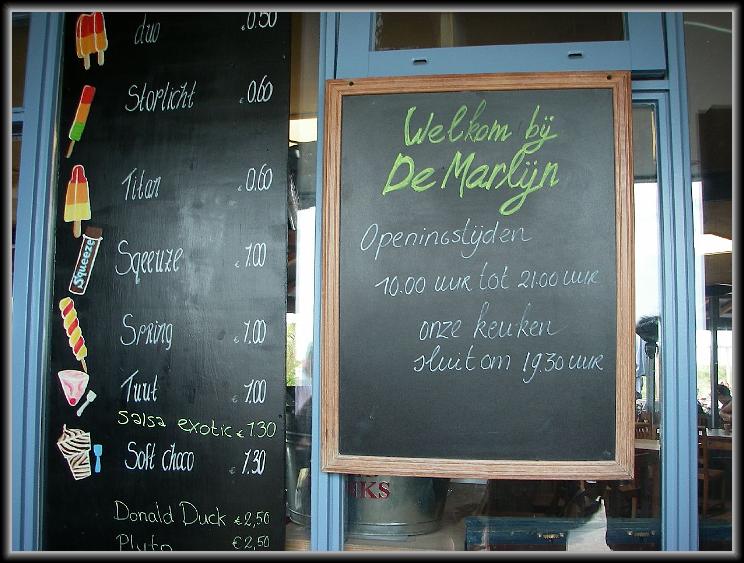 duo € 0.50
Stoplicht € 0.60
Titan € 0.60
Squeeze
Sqeeuze € 1.00
Spring € 1.00
Tuut € 1.00
Salsa exotic € 1.30
Soft choco € 1.30
Donald Duck € 2,50
Pluto € 2,50
Welkom bij
De Marlijn
Openingstijden
10.00 uur tot 21.00 uur
onze keuken
sluit om 19.30 uur
KS